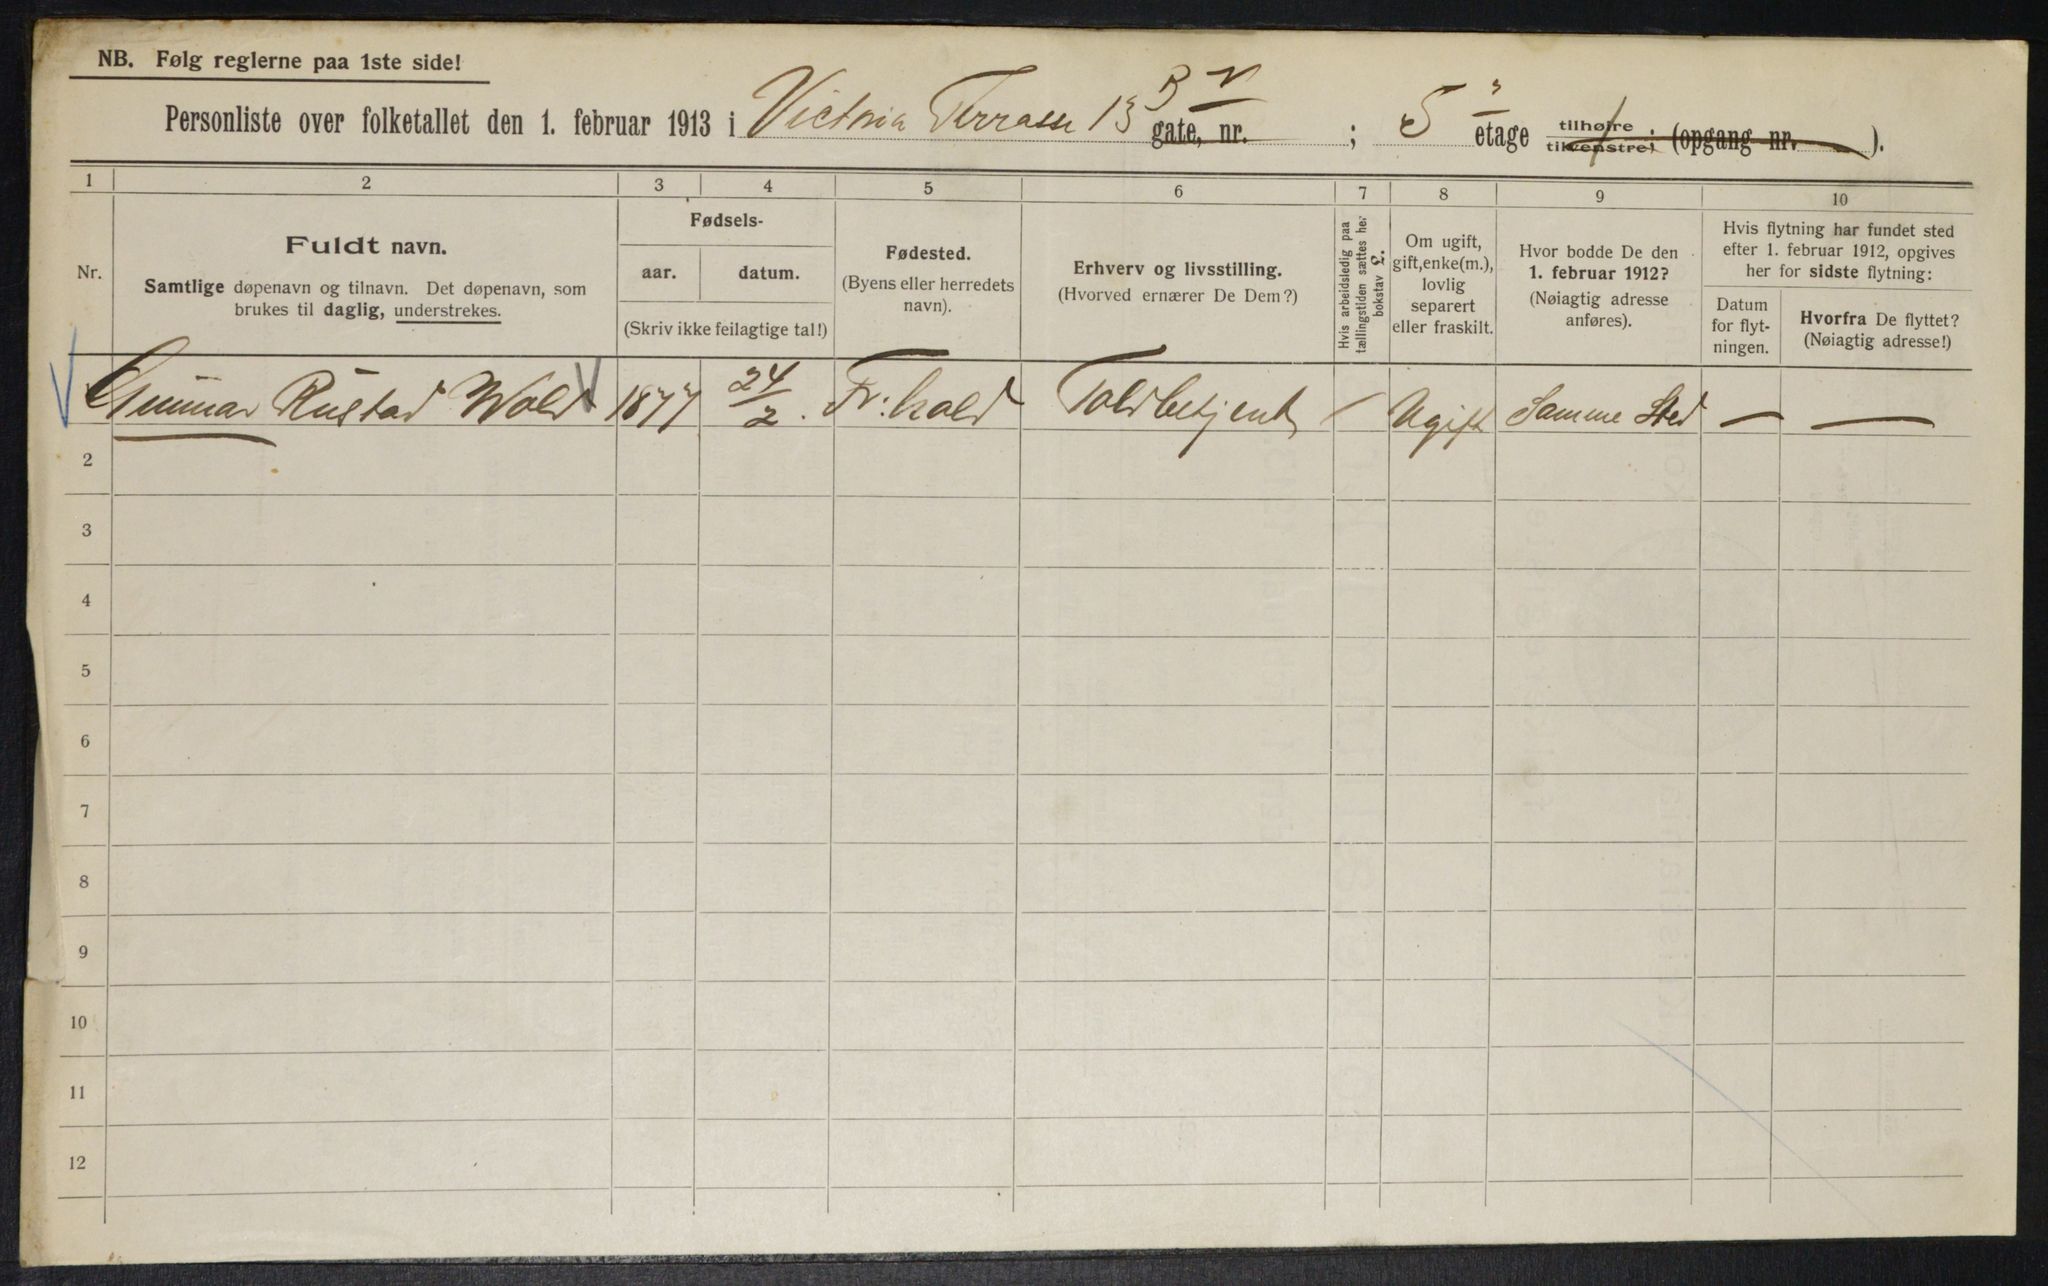 NB. Følg reglerne paa 1ste side!
Personliste over folketallet den 1. februar 1913 i Victoria Terrasse 13 B gate, nr. ; 5 etage tilhøire tilvenstre; (opgang nr. ).
1 2 3 4 5 6 7 8 9 10
Nr.
Fuldt navn.
Samtlige døpenavn og tilnavn. Det døpenavn, som
brukes til daglig, understrekes.
Fødsels-
aar. datum.
(Skriv ikke feilagtige tal!)
Fødested.
(Byens eller herredets
navn).
Erhverv og livsstilling.
(Hvorved ernærer De Dem?)
Hvis arbeidsledig paa
tællingstiden sættes her
bokstav L.
Om ugift,
gift, enke(m.),
lovlig
separert
eller fraskilt.
Hvor bodde De den
1. februar 1912?
(Nøiagtig adresse
anføres).
Hvis flytning har fundet sted
efter 1. februar 1912, opgives
her for sidste flytning:
Datum
for flyt-
ningen.
Hvorfra De flyttet?
(Nøiagtig adresse!)
Gunnar Rustad Wold 1877 24/2. Fr:hald Toldbetjent / Ugift Samme Sted — —
2
3
4
5
6
7
8
9
10
11
12